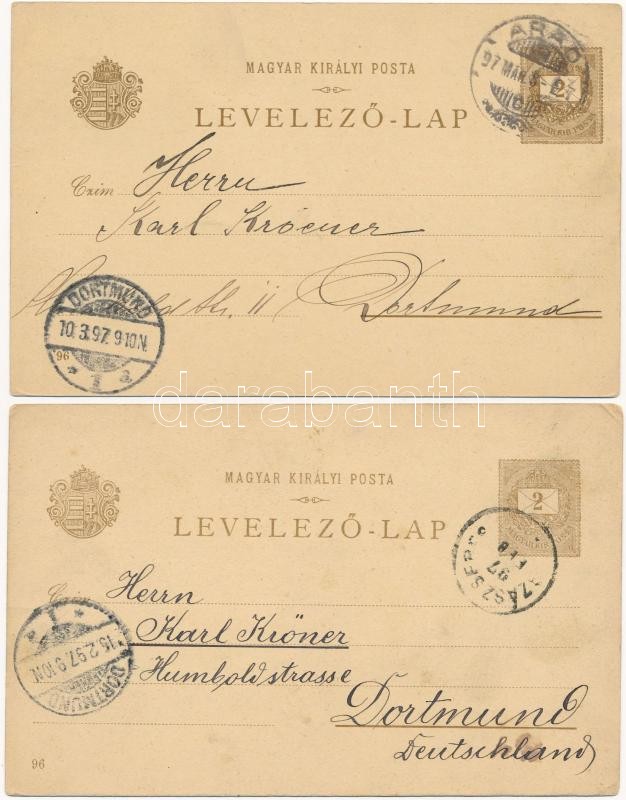 MAGYAR KIRÁLYI POSTA
LEVELEZŐ-LAP
ARAD
97 MAR.
2
MAGYAR KIR. POSTA
Czim
Herrn
Karl Kröener
11 Dortmund
DORTMUND
10.3.97. 9-10N.
* 1 a
96
darabanth
MAGYAR KIRÁLYI POSTA
LEVELEZŐ-LAP
2
MAGYAR KIR. POSTA
97
Czim
Herrn
Karl Kröner
Humboldstrasse
Dortmund
Deutschland
15.2.97. 9-10N.
DORTMUND
96